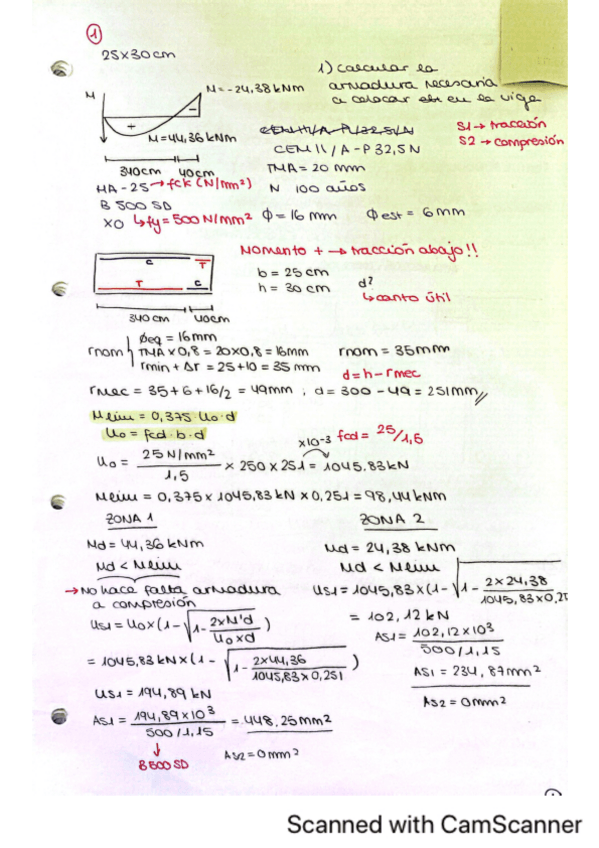 1
25x30cm
1) Calcular la armadura necesaria a colocar en la viga
M
M=-24,38 kNm
+
-
M=44,36 kNm
340cm 40cm
CEM II/A-P 32,5N
S1→ tracción
S2→ compresión
TMA=20 mm
HA-25→fck (N/mm²)
N 100 años
B 500 SD
X0 ↳fy=500 N/mm² ϕ=16 mm ϕest=6mm
Momento + → tracción abajo!!
C T
T C
b = 25 cm
h = 30 cm
d?
↳canto útil
340 cm 40cm
rnom
ϕeq = 16mm
TMA x 0,8 = 20x0,8 = 16mm
rmin + Δr = 25+10 = 35 mm
rnom = 35mm
d=h-rmec
rmec = 35+6+16/2 = 49mm ; d= 300-49 = 251mm//
Mlim = 0,375 Uo·d
Uo = fcd·b·d
x10-3 fcd= 25/1,5
Uo = 25 N/mm² / 1,5 x 250 x 251 = 1045,83 kN
Mlim = 0,375 x 1045,83 kN x 0,251 = 98,44 kNm
ZONA 1
Md = 44,36 kNm
Md < Mlim
→No hace falta armadura a compresión
Us1 = Uo x (1-√1- 2xMd / Uoxd )
= 1045,83 kN x (1- √1- 2x44,36 / 1045,83x0,251 )
Us1 = 194,89 kN
As1 = 194,89x10³ / 500/1,15 = 448,25mm²
↓
B500SD
As2=0mm²
ZONA 2
Md = 24,38 kNm
Md < Mlim
Us1 = 1045,83 x (1- √1- 2x24,38 / 1045,83x0,2
= 102,12 kN
As1 = 102,12x10³ / 500/1,15
As1 = 234,87mm²
As2 = 0mm²
Scanned with CamScanner